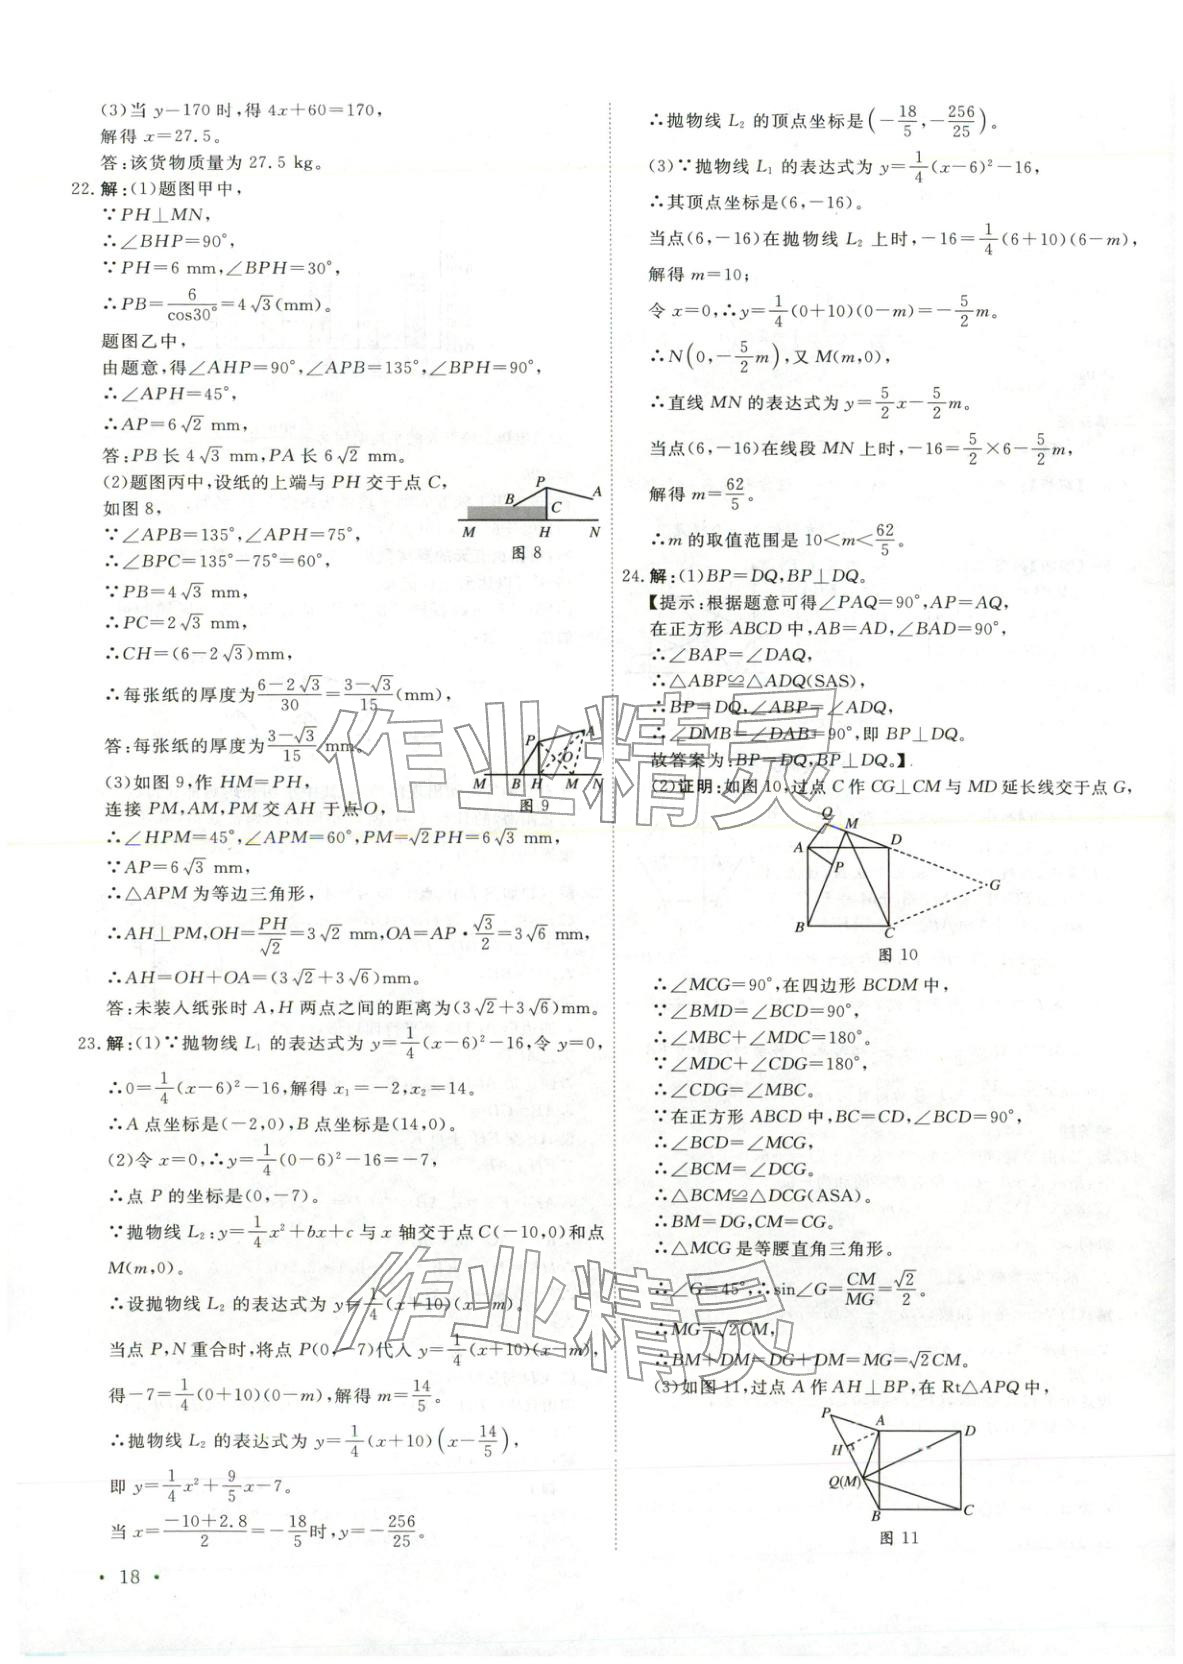 (3)当 y－170 时,得 4x＋60＝170,
解得 x＝27.5。
答:该货物质量为 27.5 kg。
22.解:(1)题图甲中,
∵PH⊥MN,
∴∠BHP＝90°,
∵PH＝6 mm,∠BPH＝30°,
∴PB＝6/cos30°＝4√3(mm)。
题图乙中,
由题意,得∠AHP＝90°,∠APB＝135°,∠BPH＝90°,
∴∠APH＝45°,
∴AP＝6√2 mm,
答:PB 长 4√3 mm,PA 长 6√2 mm。
(2)题图丙中,设纸的上端与 PH 交于点 C,
如图 8,
∵∠APB＝135°,∠APH＝75°,
∴∠BPC＝135°－75°＝60°,
∵PB＝4√3 mm,
∴PC＝2√3 mm,
∴CH＝(6－2√3)mm,
∴每张纸的厚度为(6－2√3)/30＝(3－√3)/15(mm),
答:每张纸的厚度为(3－√3)/15 mm。
(3)如图 9,作 HM＝PH,
连接 PM,AM,PM 交 AH 于点 O,
∴∠HPM＝45°,∠APM＝60°,PM＝√2PH＝6√3 mm,
∵AP＝6√3 mm,
∴△APM 为等边三角形,
∴AH⊥PM,OH＝PH/√2＝3√2 mm,OA＝AP·√3/2＝3√6 mm,
∴AH＝OH＋OA＝(3√2＋3√6)mm。
答:未装入纸张时 A,H 两点之间的距离为(3√2＋3√6)mm。
23.解:(1)∵抛物线 L₁ 的表达式为 y＝1/4(x－6)²－16,令 y＝0,
∴0＝1/4(x－6)²－16,解得 x₁＝－2,x₂＝14。
∴A 点坐标是(－2,0),B 点坐标是(14,0)。
(2)令 x＝0,∴y＝1/4(0－6)²－16＝－7,
∴点 P 的坐标是(0,－7)。
∵抛物线 L₂:y＝1/4x²＋bx＋c 与 x 轴交于点 C(－10,0)和点
M(m,0)。
∴设抛物线 L₂ 的表达式为 y＝1/4(x＋10)(x－m)。
当点 P,N 重合时,将点 P(0,－7)代入 y＝1/4(x＋10)(x－m),
得－7＝1/4(0＋10)(0－m),解得 m＝14/5。
∴抛物线 L₂ 的表达式为 y＝1/4(x＋10)(x－14/5),
即 y＝1/4x²＋9/5x－7。
当 x＝(－10＋2.8)/2＝－18/5时,y＝－256/25。
P B A C M H N
图 8
A P O M B H M N
图 9
· 18 ·
∴抛物线 L₂ 的顶点坐标是(－18/5,－256/25)。
(3)∵抛物线 L₁ 的表达式为 y＝1/4(x－6)²－16,
∴其顶点坐标是(6,－16)。
当点(6,－16)在抛物线 L₂ 上时,－16＝1/4(6＋10)(6－m),
解得 m＝10;
令 x＝0,∴y＝1/4(0＋10)(0－m)＝－5/2m。
∴N(0,－5/2m),又 M(m,0),
∴直线 MN 的表达式为 y＝5/2x－5/2m。
当点(6,－16)在线段 MN 上时,－16＝5/2×6－5/2m,
解得 m＝62/5。
∴m 的取值范围是 10＜m＜62/5。
24.解:(1)BP＝DQ,BP⊥DQ。
【提示:根据题意可得∠PAQ＝90°,AP＝AQ,
在正方形 ABCD 中,AB＝AD,∠BAD＝90°,
∴∠BAP＝∠DAQ,
∴△ABP≌△ADQ(SAS),
∴BP＝DQ,∠ABP＝∠ADQ,
∴∠DMB＝∠DAB＝90°,即 BP⊥DQ。
故答案为:BP＝DQ,BP⊥DQ。】
(2)证明:如图 10,过点 C 作 CG⊥CM 与 MD 延长线交于点 G,
Q M A D P G B C
图 10
∴∠MCG＝90°,在四边形 BCDM 中,
∵∠BMD＝∠BCD＝90°,
∴∠MBC＋∠MDC＝180°,
∵∠MDC＋∠CDG＝180°,
∴∠CDG＝∠MBC。
∵在正方形 ABCD 中,BC＝CD,∠BCD＝90°,
∴∠BCD＝∠MCG,
∴∠BCM＝∠DCG。
∴△BCM≌△DCG(ASA)。
∴BM＝DG,CM＝CG。
∴△MCG 是等腰直角三角形。
∴∠G＝45°,∴sin∠G＝CM/MG＝√2/2。
∴MG＝√2CM,
∴BM＋DM＝DG＋DM＝MG＝√2CM。
(3)如图 11,过点 A 作 AH⊥BP,在 Rt△APQ 中,
P A D H Q(M) B C
图 11
作业精灵
作业精灵